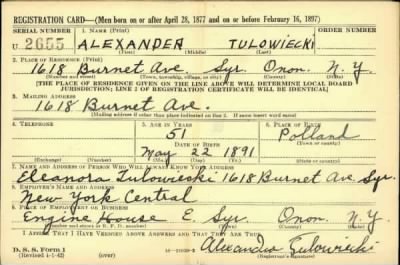 REGISTRATION CARD—(Men born on or after April 28, 1877 and on or before February 16, 1897)
SERIAL NUMBER 1. NAME (Print) ORDER NUMBER
U 2655 ALEXANDER TULOWIECKI
(First) (Middle) (Last)
2. PLACE OF RESIDENCE (Print)
1618 Burnet Ave. Syr. Onon. N. Y.
(Number and street) (Town, township, village, or city) (County) (State)
[THE PLACE OF RESIDENCE GIVEN ON THE LINE ABOVE WILL DETERMINE LOCAL BOARD
JURISDICTION; LINE 2 OF REGISTRATION CERTIFICATE WILL BE IDENTICAL]
3. MAILING ADDRESS
1618 Burnet Ave.
[Mailing address if other than place indicated on line 2. If same insert word same]
4. TELEPHONE 5. AGE IN YEARS 6. PLACE OF BIRTH
51 Polland
DATE OF BIRTH (Town or county)
May 22 1891
(Exchange) (Number) (Mo.) (Day) (Yr.) (State or country)
7. NAME AND ADDRESS OF PERSON WHO WILL ALWAYS KNOW YOUR ADDRESS
Eleanora Tulowiecki 1618 Burnet Ave. Syr.
8. EMPLOYER'S NAME AND ADDRESS
New York Central
9. PLACE OF EMPLOYMENT OR BUSINESS
Engine House E. Syr. Onon. N. Y.
(Number and street or R. F. D. number) (Town) (County) (State)
I AFFIRM THAT I HAVE VERIFIED ABOVE ANSWERS AND THAT THEY ARE TRUE.
D. S. S. Form 1
(Revised 4-1-42) (over) Alexander Tulowiecki
(Registrant's signature)